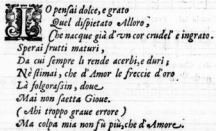 IO pensai dolce, e grato
Quel dispietato Alloro,
Che nacque già d'vn cor crudel e ingrato.
Sperai frutti maturi,
Da cui sempre li rende acerbi, e duri;
Nè stimai, che d'Amor le freccie d'oro
Là folgorasin, doue
Mai non saetta Gioue.
( Ahi troppo graue errore )
Ma colpa mia non fù più, che d'Amore.